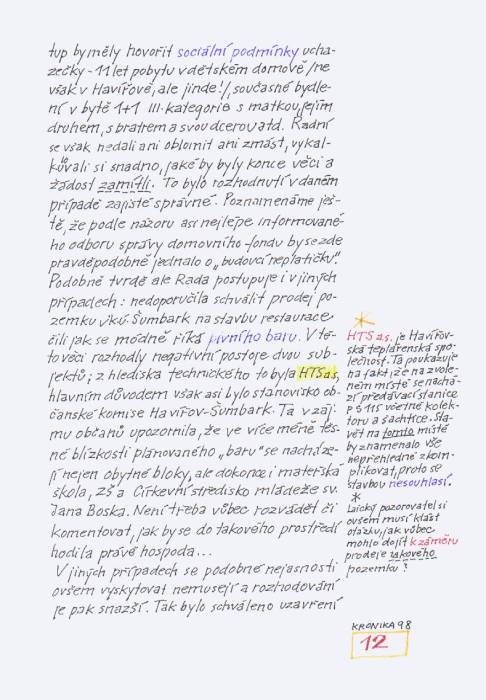 tup by měly hovořit sociální podmínky ucha-
zečky - 11 let pobytu v dětském domově /ne
však v Havířově, ale jinde!/, současné bydle-
ní v bytě 1+1 III. kategorie s matkou, jejím
druhem, s bratrem a svou dcerou atd. Radní
se však nedali ani oblomit ani zmást, vykal-
kulovali si snadno, jaké by byly konce věci a
žádost zamítli. To bylo rozhodnutí v daném
případě zajisté správné. Poznamenáme ješ-
tě, že podle názoru asi nejlépe informované-
ho odboru správy domovního fondu by se zde
pravděpodobně jednalo o „budoucí neplatičku".
Podobně tvrdě ale Rada postupuje i v jiných
případech: nedoporučila schválit prodej po-
zemku v k.ú. Šumbark na stavbu restaurace
čili jak se módně říká pivního baru. V té-
to věci rozhodly negativní postoje dvou sub-
jektů; z hlediska technického to byla HTS a.s,
hlavním důvodem však asi bylo stanovisko ob-
čanské komise Havířov-Šumbark. Ta v záj-
mu občanů upozornila, že ve více méně těs-
né blízkosti plánovaného „baru" se nacháze-
jí nejen obytné bloky, ale dokonce i mateřská
škola, ZŠ a Církevní středisko mládeže sv.
Jana Boska. Není třeba vůbec rozvádět či
komentovat, jak by se do takového prostředí
hodila právě hospoda...
V jiných případech se podobné nejasnosti
ovšem vyskytovat nemusejí a rozhodování
je pak snazší. Tak bylo schváleno uzavření
*
HTS a.s. je Havířov-
ská teplárenská spo-
lečnost. Ta poukazuje
na fakt, že na zvole-
ném místě se nachá-
zí předávací stanice
PS 115 včetně kolek-
toru a šachtice. Sta-
vět na tomto místě
by znamenalo vše
nepřehledně zkom-
plikovat, proto se
stavbou nesouhlasí.
*
Laický pozorovatel si
ovšem musí klást
otázku, jak vůbec
mohlo dojít k záměru
prodeje takového
pozemku?
KRONIKA 98
12